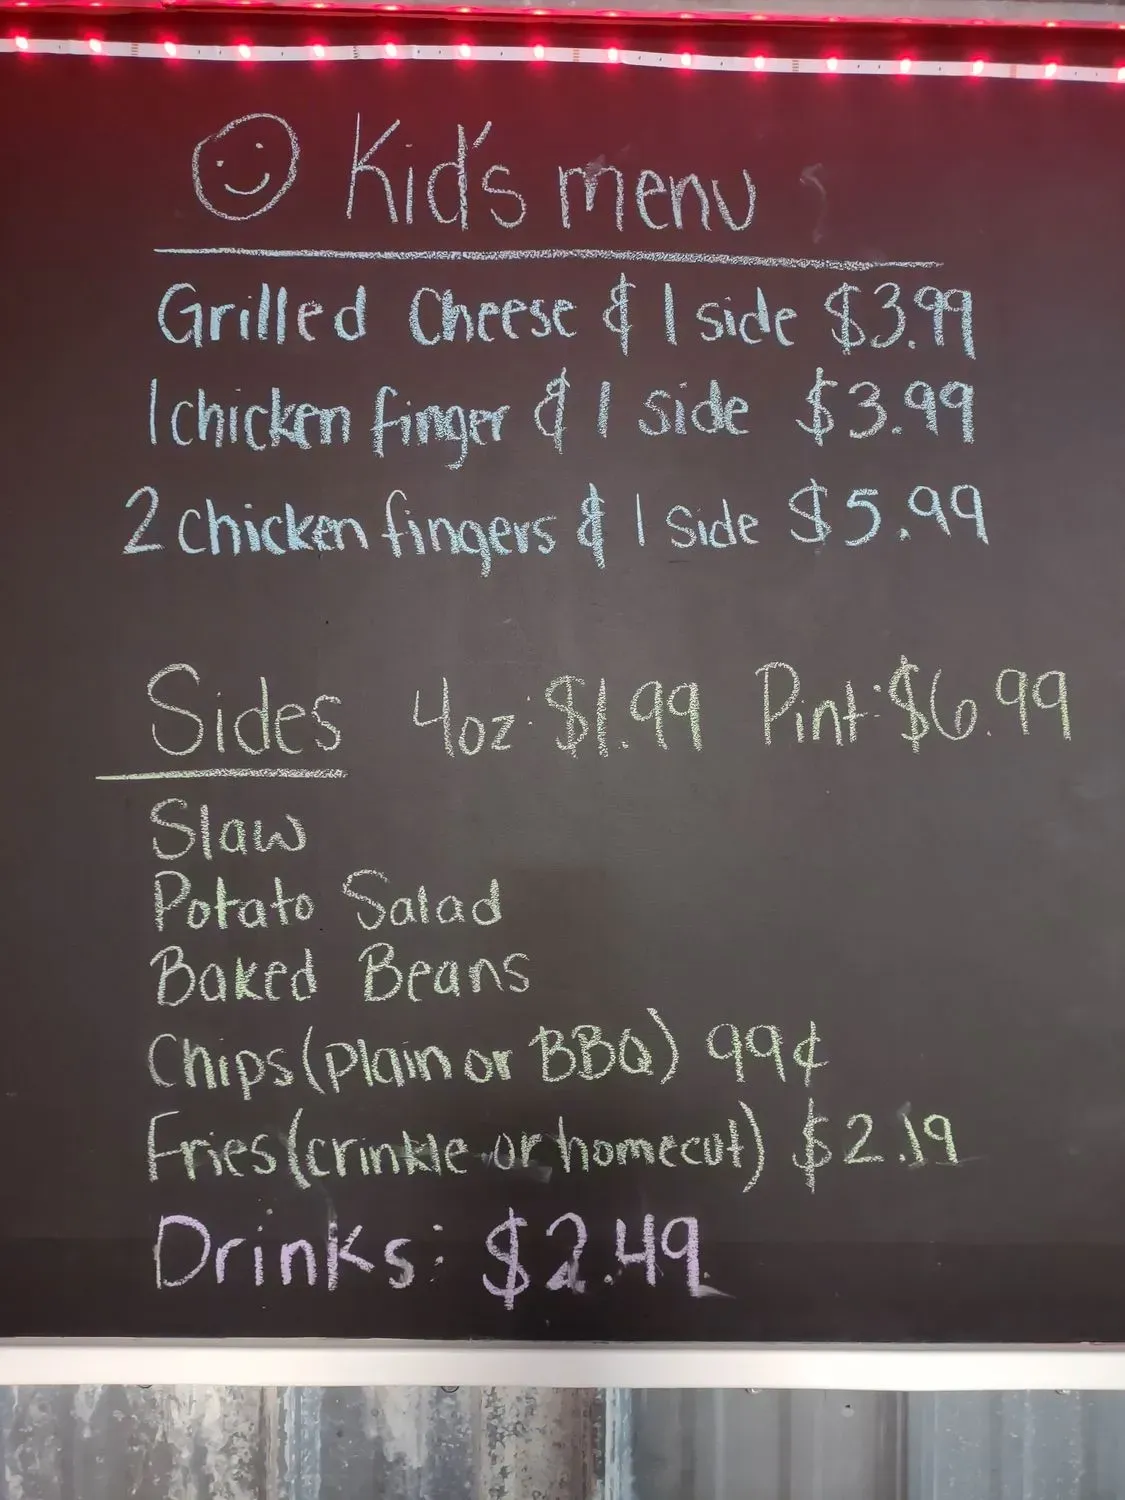 Kid's menu
Grilled Cheese & 1 side $3.99
1 chicken finger & 1 side $3.99
2 chicken fingers & 1 side $5.99
Sides 4oz: $1.99 Pint: $6.99
Slaw
Potato Salad
Baked Beans
Chips (plain or BBQ) 99¢
Fries (crinkle or homecut) $2.19
Drinks: $2.49